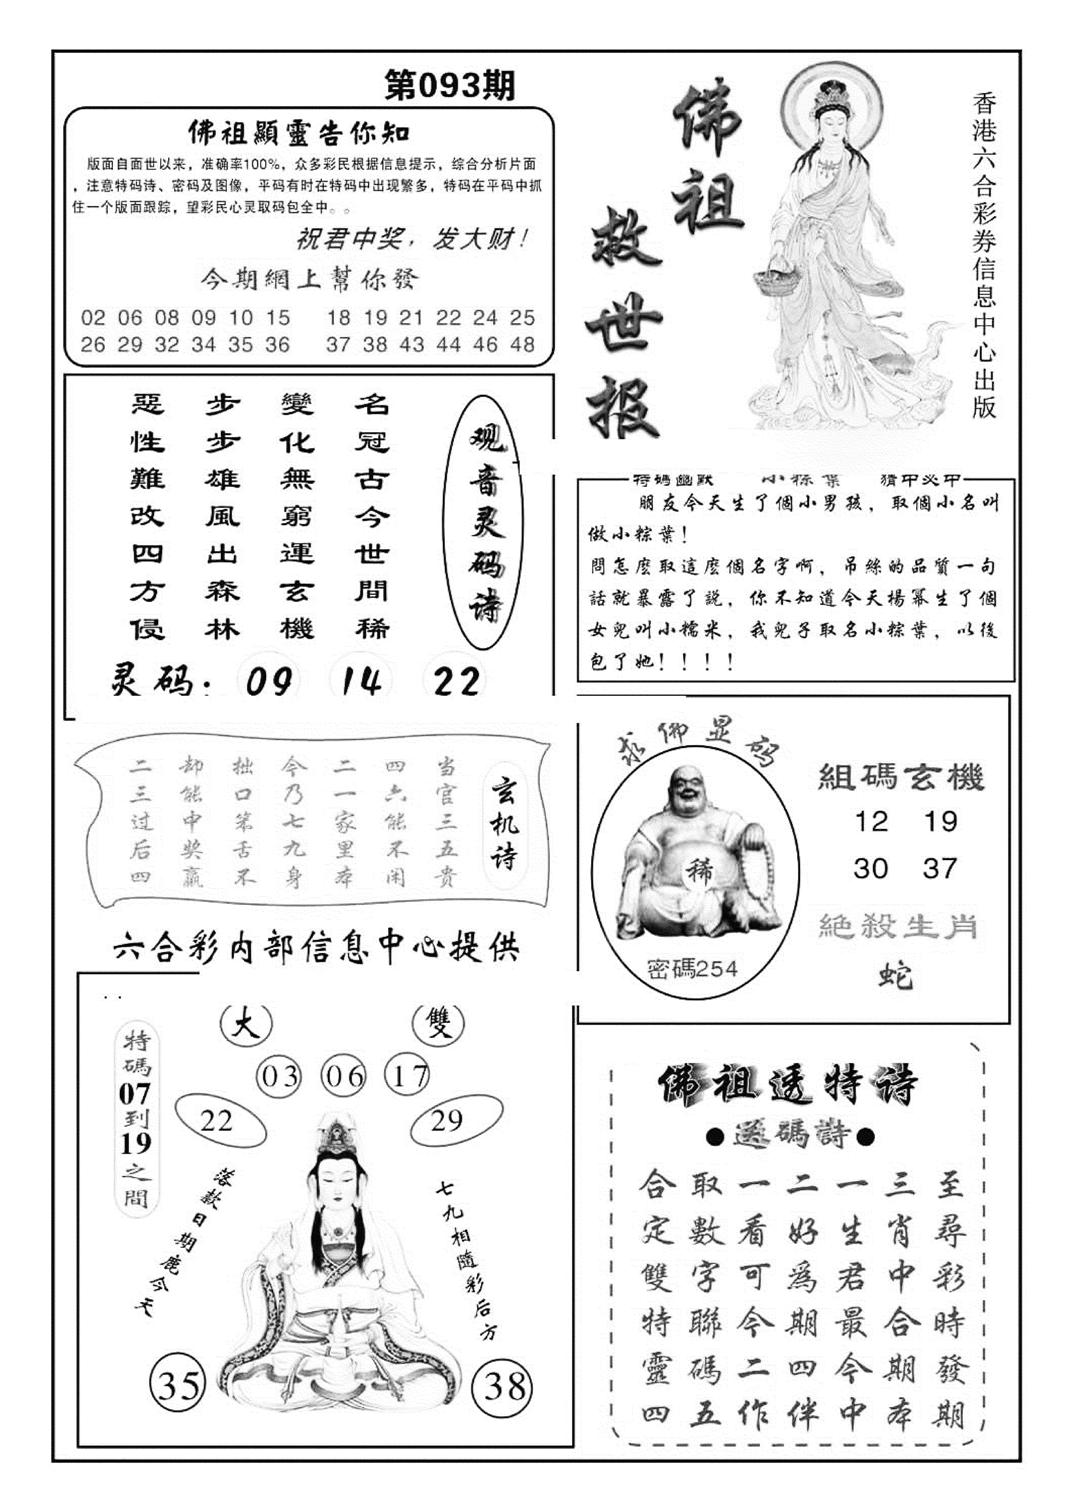 第093期
佛祖顯靈告你知
版面自面世以来，准确率100%，众多彩民根据信息提示，综合分析片面
，注意特码诗、密码及图像，平码有时在特码中出现繁多，特码在平码中抓
住一个版面跟踪，望彩民心灵取码包全中。。
祝君中奖，发大财！
今期網上幫你發
02 06 08 09 10 15 18 19 21 22 24 25
26 29 32 34 35 36 37 38 43 44 46 48
佛祖
救世报
香港六合彩券信息中心出版
观音灵码诗
名冠古今世間稀
變化無窮運玄機
步步雄風出森林
惡性難改四方侵
灵码：09 14 22
特碼幽默 小粽葉 猜中必中
朋友今天生了個小男孩，取個小名叫
做小粽葉！
問怎麽取這麽個名字啊，吊絲的品質一句
話就暴露了説，你不知道今天楊幂生了個
女兒叫小糯米，我兒子取名小粽葉，以後
包了她！！！！
玄机诗
当官三五贵
四六能不闲
二一家里本
今乃七九身
拙口笨舌不
却能中奖赢
二三过后四
求佛显码
稀
密碼254
組碼玄機
12 19
30 37
絕殺生肖
蛇
六合彩内部信息中心提供
大
雙
03 06 17
22
29
特碼07到19之間
落款日期鹿今天
七九相隨彩后方
35
38
佛祖透特诗
●送碼詩●
至尋彩時發期
三肖中合期本
一生君最今中
二好爲期四伴
一看可今二作
取數字聯碼五
合定雙特靈四